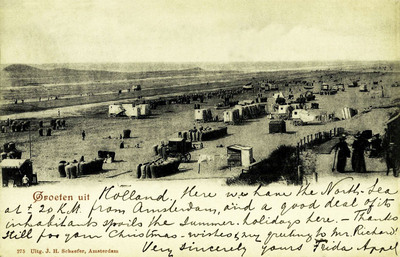 Groeten uit Holland, Here we have the North-Sea
at ± 20 K.M. from Amsterdam, and a good deal of its
inhabitants spoils the summer-holidays here. - Thanks
still for your Christmas-wishes, my greeting to Mr. Richard!
275 Uitg. J. H. Schaefer, Amsterdam
Very sincerely yours Frida Appel